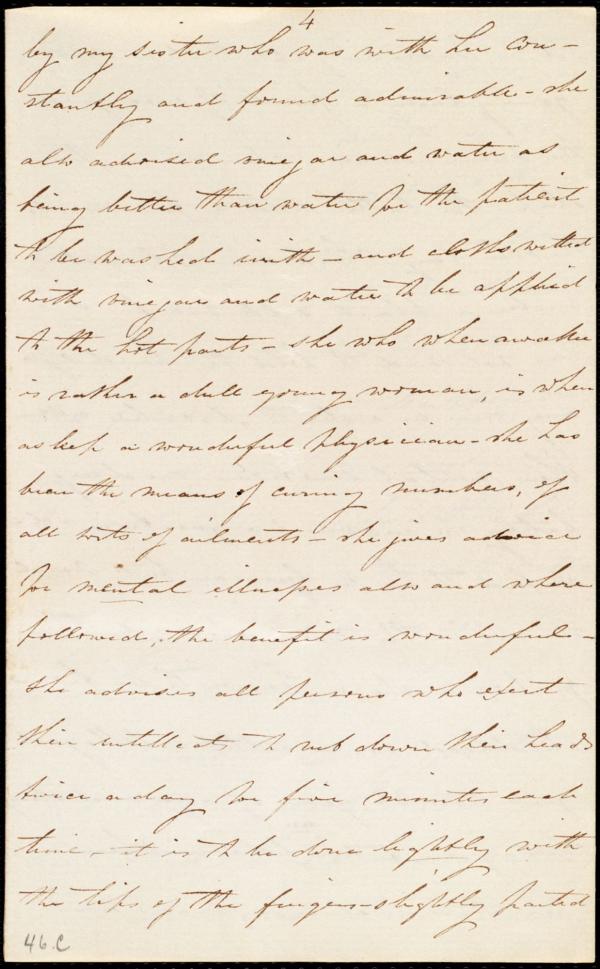 4
by my sister who was with her con-
stantly and found admirable - she
also advised vinegar and water as
being better than water for the patient
to be washed with - and cloths wetted
with vinegar and water to be applied
to the hot parts - she who when awake
is rather a dull young woman, is when
asleep a wonderful physician - she has
been the means of curing numbers, of
all sorts of ailments - she gives advice
for mental illnesses also and where
followed, the benefit is wonderful -
she advises all persons who exert
their intellects to rub down their heads
twice a day for five minutes each
time - it is to be done lightly with
the tips of the fingers slightly parted
46.C